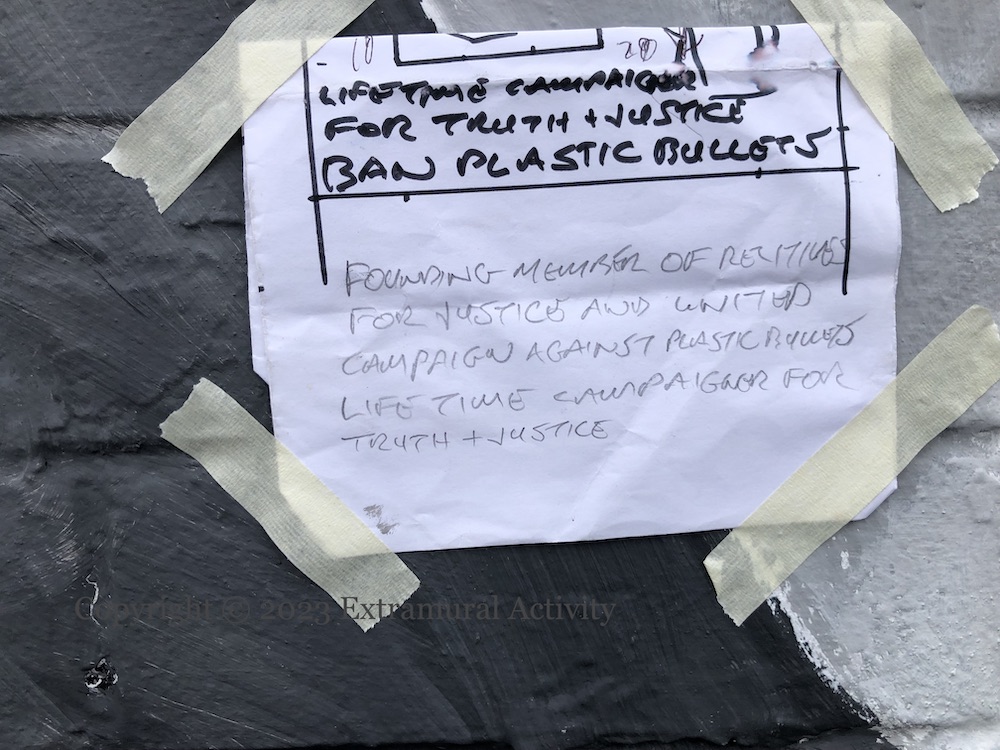 10 20
LIFETIME CAMPAIGNER
FOR TRUTH + JUSTICE
BAN PLASTIC BULLETS
FOUNDING MEMBER OF RELITIVES
FOR JUSTICE AND UNITED
CAMPAIGN AGAINST PLASTIC BULLETS
LIFE TIME CAMPAIGNER FOR
TRUTH + JUSTICE
Copyright © 2023 Extramural Activity